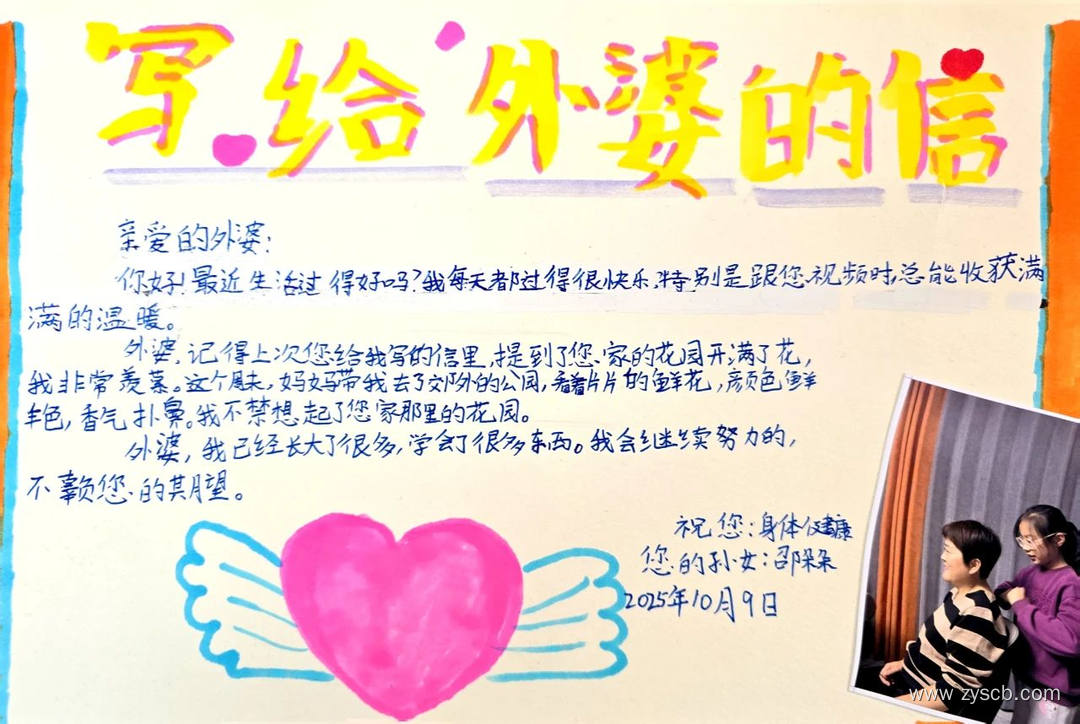 写给外婆的信
亲爱的外婆：
你好！最近生活过得好吗？我每天都过得很快乐，特别是跟您视频时，总能收获满
满的温暖。
外婆，记得上次您给我写的信里，提到了您家的花园开满了花，
我非常羡慕。这个周末，妈妈带我去了郊外的公园，看着片片的鲜花，颜色鲜
丰色，香气扑鼻。我不禁想起了您家那里的花园。
外婆，我已经长大了很多，学会了很多东西。我会继续努力的，
不辜负您的期望。
祝您：身体健康
您的孙女：邵朵朵
2025年10月9日
www.zyscb.com